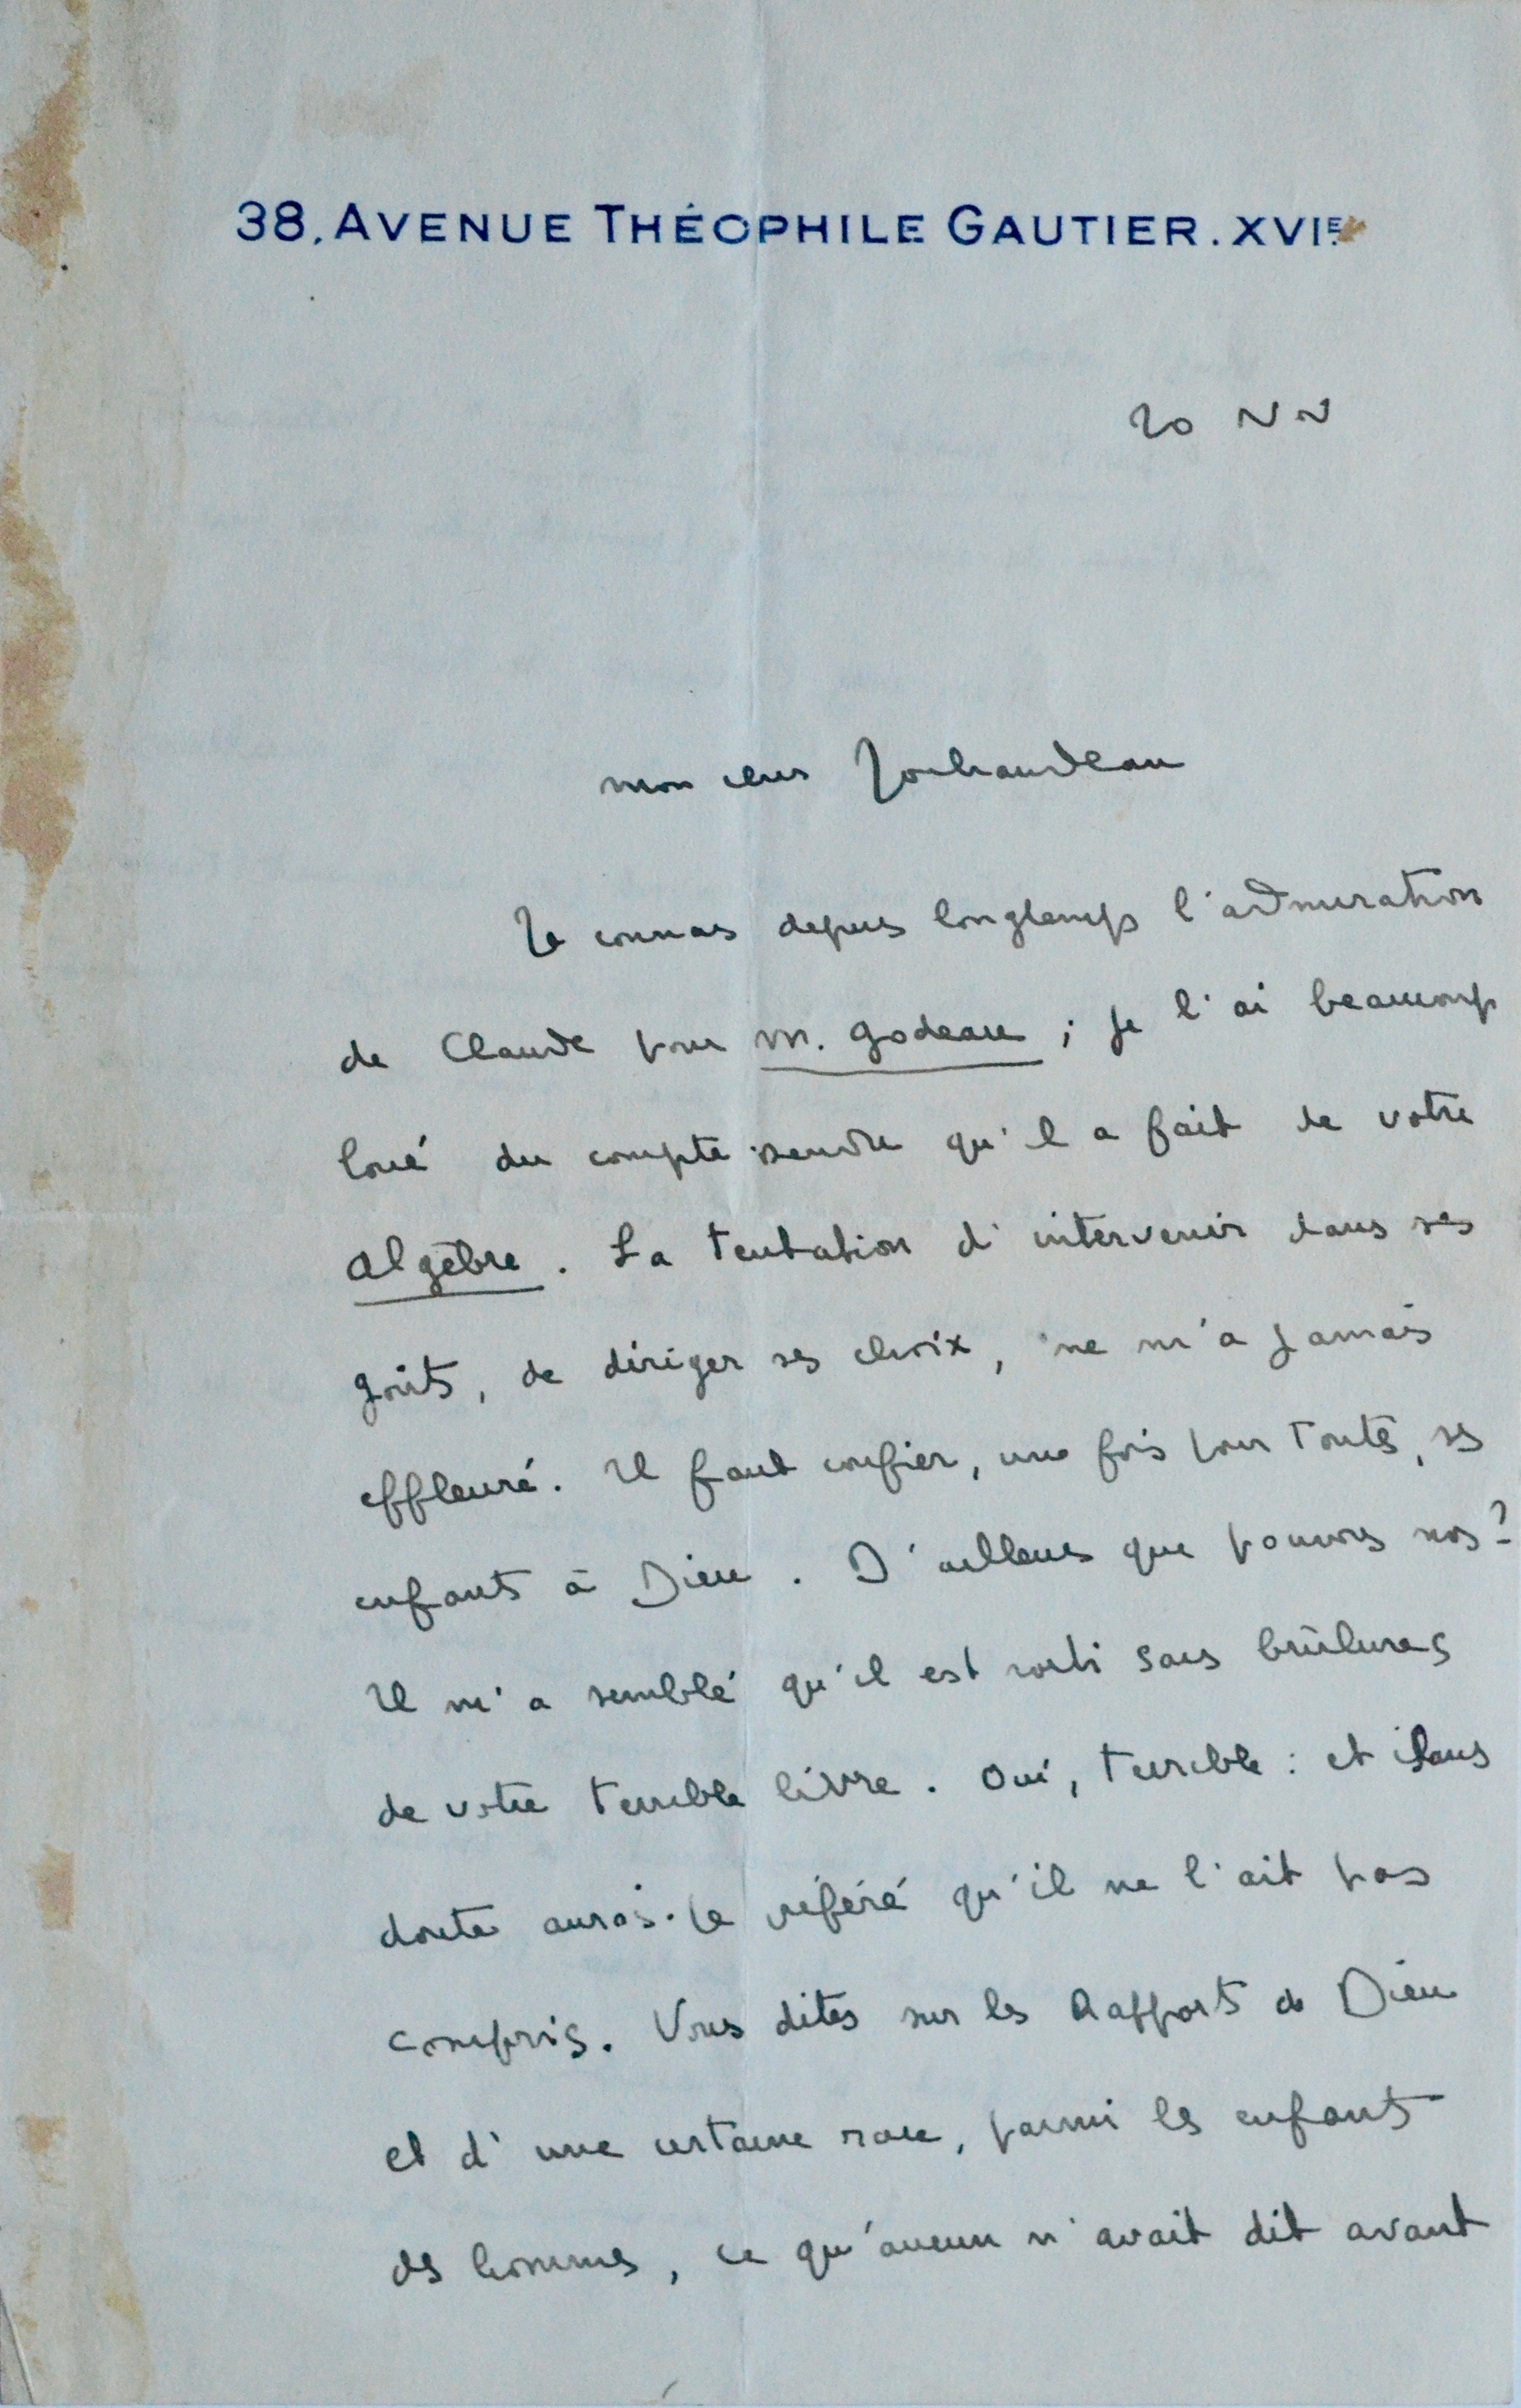 38, AVENUE THÉOPHILE GAUTIER. XVIE.
20 Nov
Mon cher Jouhandeau
Je connais depuis longtemps l'admiration
de Claude pour M. Godeau ; je l'ai beaucoup
loué du compte rendu qu'il a fait de votre
Algèbre. La tentation d'intervenir dans ses
goûts, de diriger ses choix, ne m'a jamais
effleuré. Il faut confier, une fois pour toutes, ses
enfants à Dieu. D'ailleurs que pouvons nous?
Il m'a semblé qu'il est sorti sans brûlures
de votre terrible livre. Oui, terrible : et sans
doute aurais-je préféré qu'il ne l'ait pas
compris. Vous dites sur les Rapports de Dieu
et d'une certaine race, parmi les enfants
des hommes, ce qu'aucun n'avait dit avant